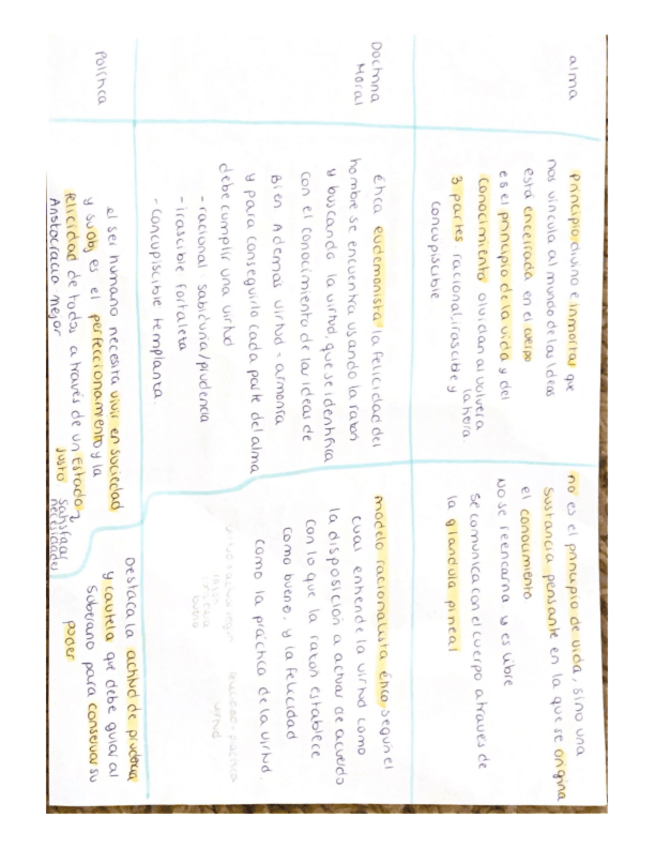 alma
principio divino e inmortal que
nos vincula al mundo de las ideas
está encerrada en el cuerpo
es el principio de la vida y del
conocimiento olvidan al volver a
la tierra
3 partes racional, irascible y
concupiscible
no es el principio de vida, sino una
sustancia pensante en la que se origina
el conocimiento
No se reencarna y es libre
Se comunica con el cuerpo a traves de
la glandula pineal
Doctrina
Moral
ética eudemonista la felicidad del
hombre se encuentra usando la razón
y buscando la virtud, que se identifica
con el conocimiento de la ideas de
Bien Además virtud = armonía
y para conseguirlo cada parte del alma
debe cumplir una virtud
- racional: sabiduría/prudencia
- irascible fortaleza
- concupiscible templanza.
modelo racionalista ético, según el
cual entiende la virtud como
la disposición a actuar de acuerdo
con lo que la razon establece
como bueno, y la felicidad
como la práctica de la virtud.
Política
el ser humano necesita vivir en sociedad
y su obj es el perfeccionamiento y la
felicidad de todos a través de un Estado
justo
satisfacer
necesidades
Aristocracia mejor
Destaca la actitud de prudencia
y cautela que debe guiar al
Soberano para conservar su
poder